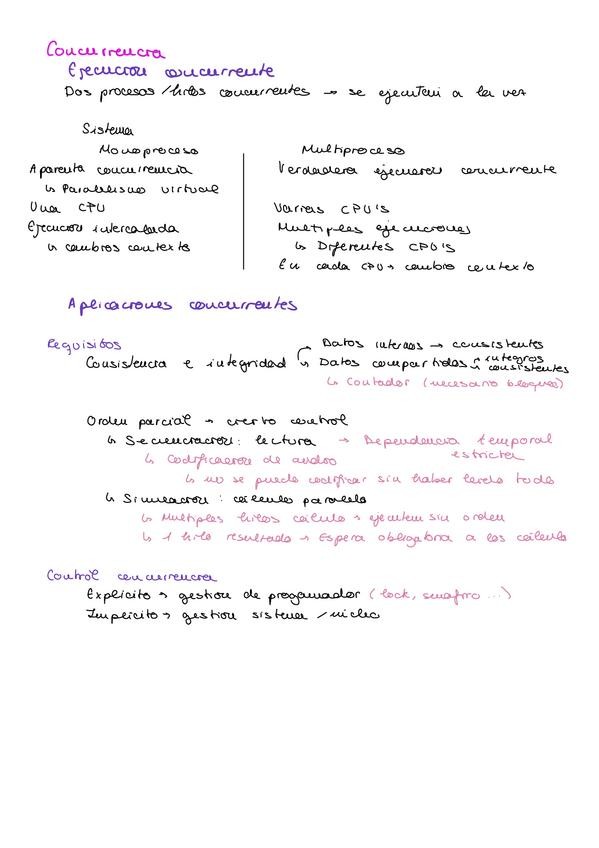 Concurrencia
Ejecución concurrente
Dos procesos/hilos concurrentes → se ejecutan a la vez
Sistema
Monoproceso
Aparenta concurrencia
↳ Paralelismo virtual
Una CPU
Ejecución intercalada
↳ cambios contexto
Multiproceso
Verdadera ejecución concurrente
Varias CPU's
Multiples ejecuciones
↳ Diferentes CPU's
En cada CPU → cambio contexto
Aplicaciones concurrentes
Requisitos
Consistencia e integridad
Datos internos → consistentes
Datos compartidos → integros
→ consistentes
↳ Contador (necesario bloqueo)
Orden parcial → cierto control
↳ Secuenciación: lectura → Dependencia temporal
estricta
↳ Codificación de audio
↳ no se puede codificar sin haber leído todo
↳ Simulación: cálculo paralelo
↳ Multiples hilos cálculo → ejecuten sin orden
↳ 1 hilo resultado → Espera obligatoria a los cálculo
Control concurrencia
Explícito → gestion de programador (lock, semáforo ...)
Implícito → gestion sistema / núcleo